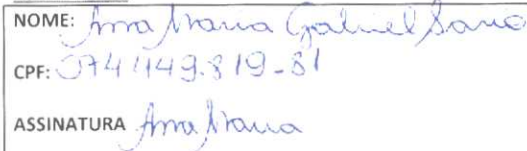 NOME: Ana Maria Gabriel Sano
CPF: 074.449.819-81
ASSINATURA Ana Maria